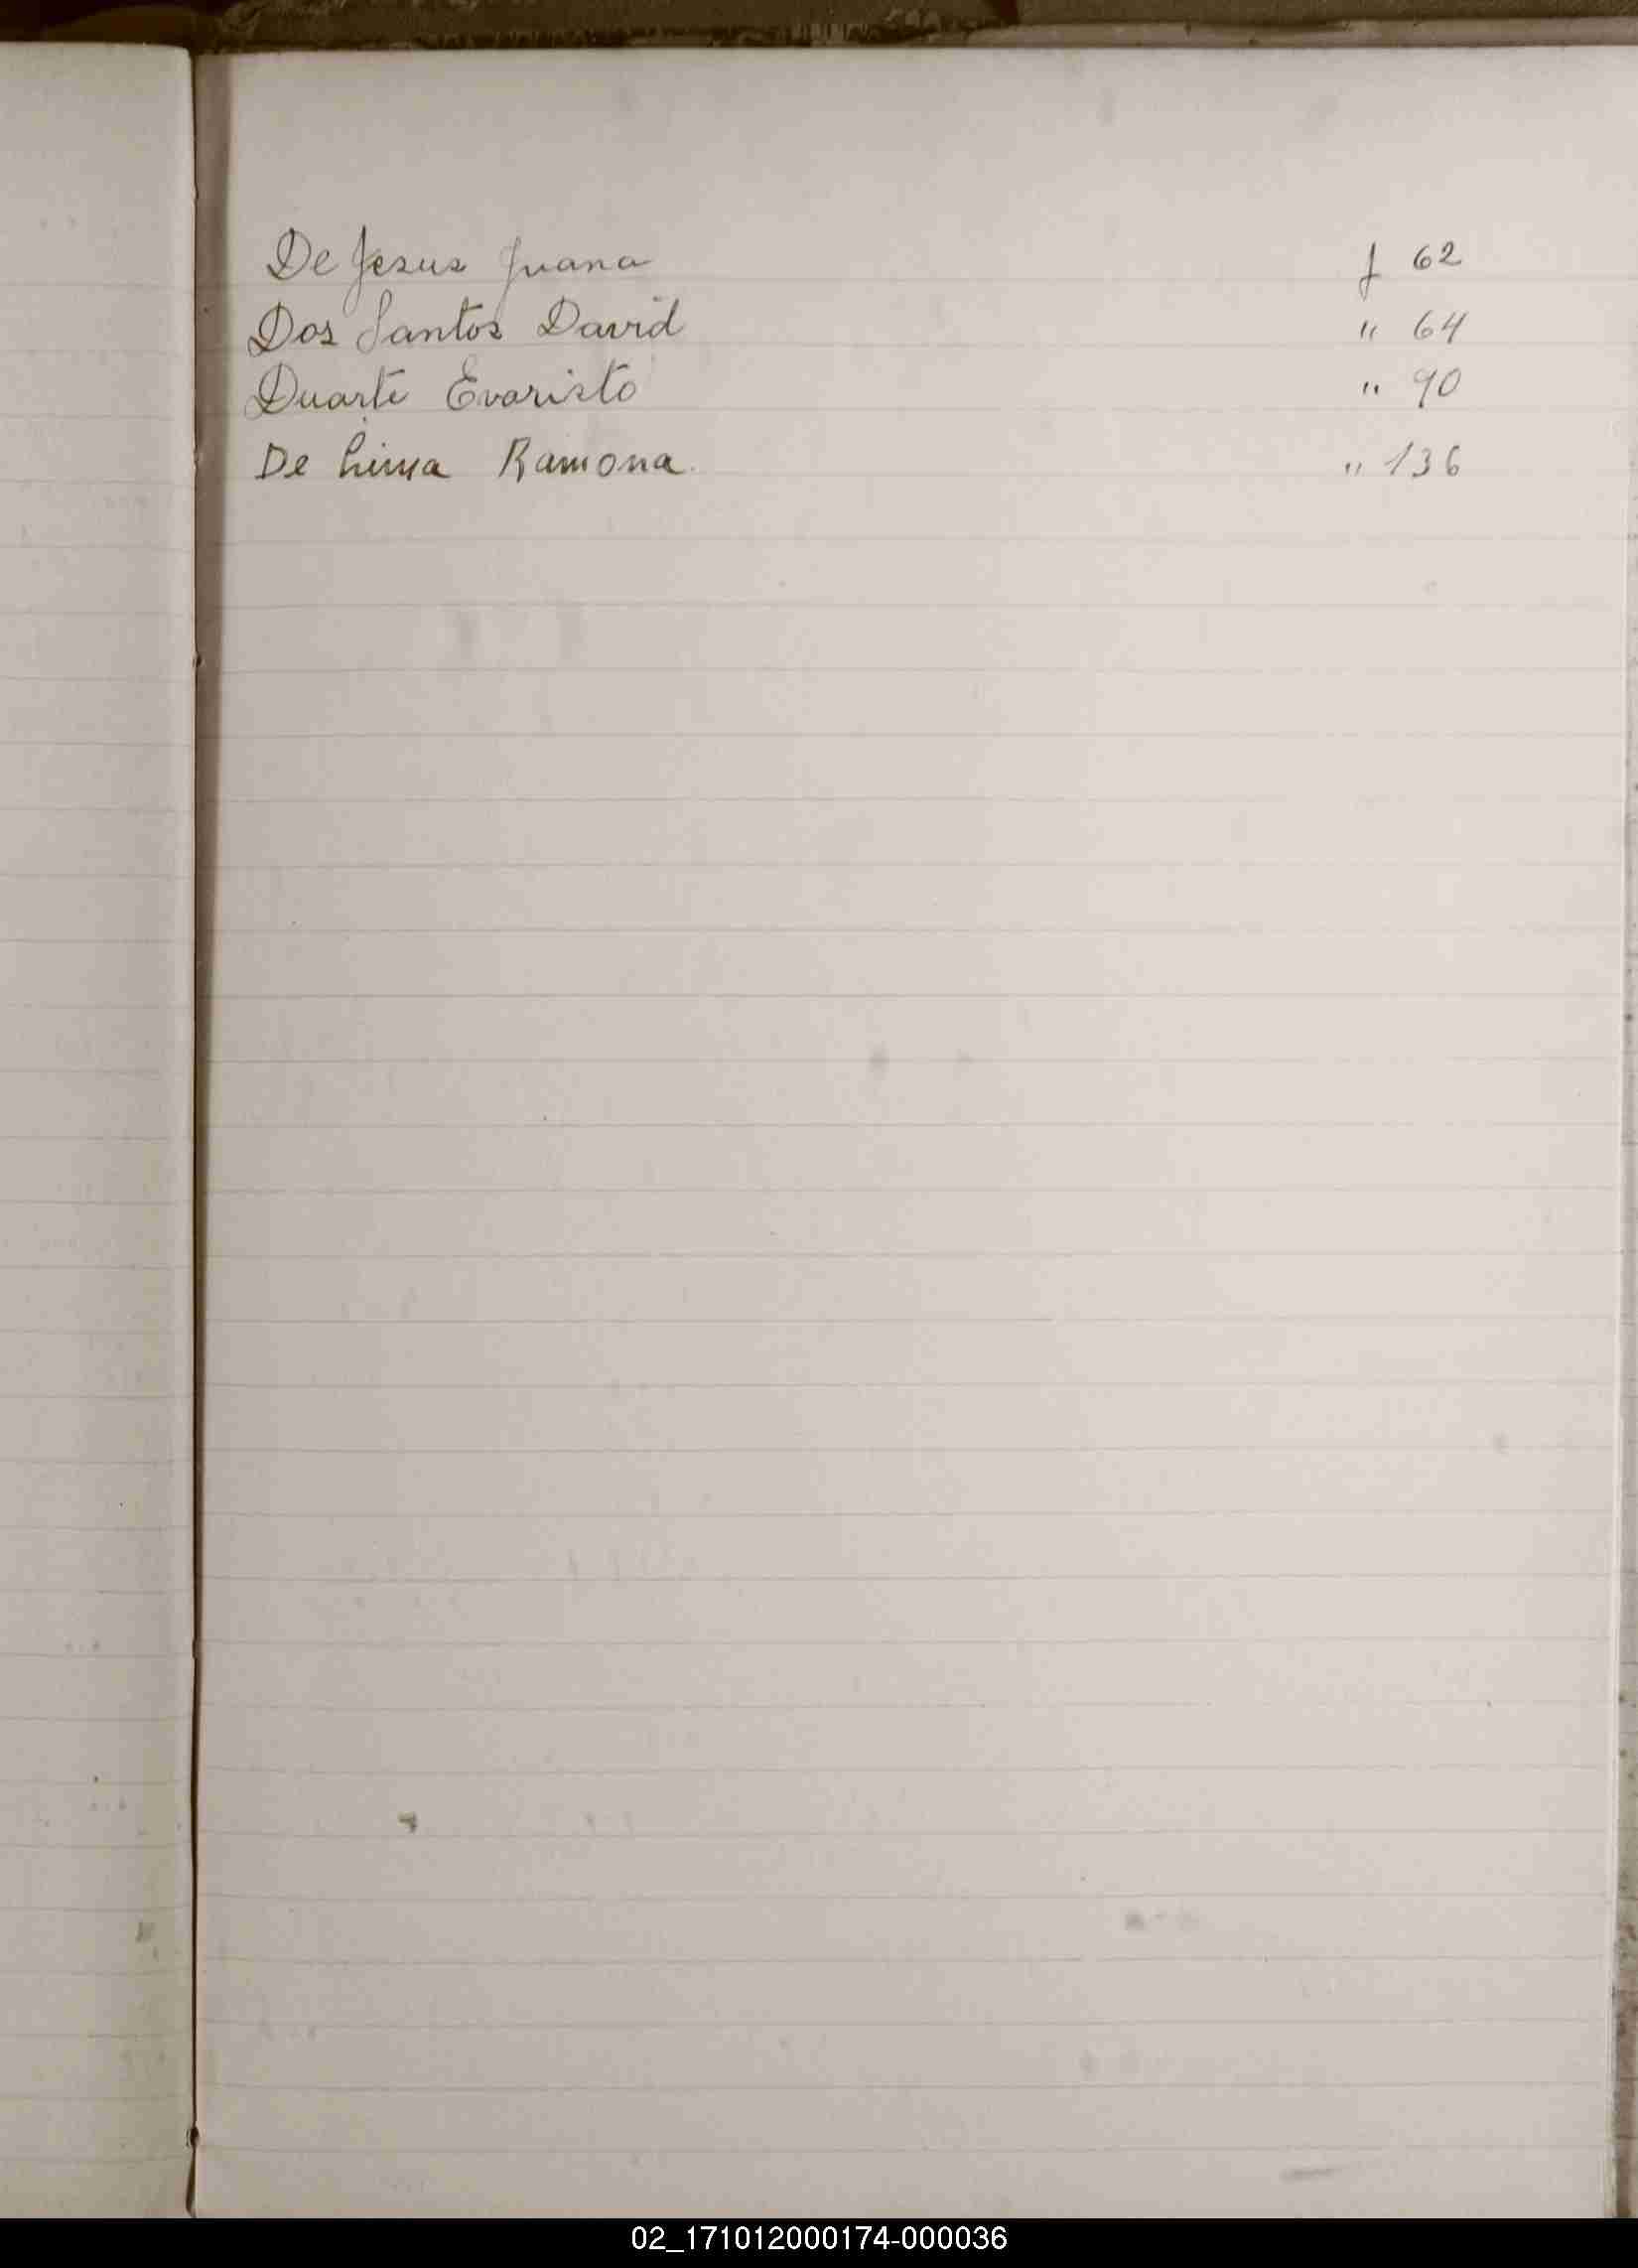 De Jesus Juana f 62
Dos Santos David " 64
Duarte Evaristo " 90
De Lima Ramona. " 136
02_171012000174-000036